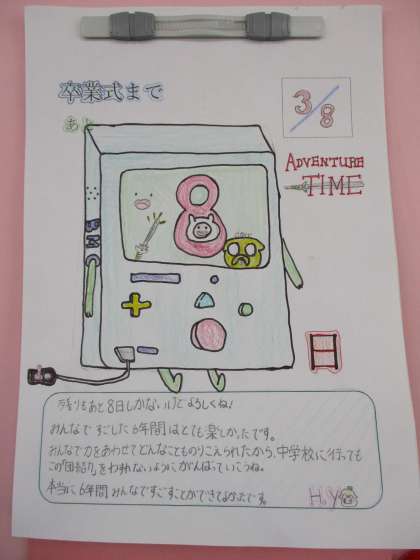 卒業式まで
3/8
あと
ADVENTURE
TIME
8
BMO
日
残りもあと8日しかないけどよろしくね!
みんなですごした6年間はとても楽しかったです。
みんなで力をあわせてどんなこともものりこえられたから、中学校に行っても
この「団結力」をわすれないようにがんばっていこうね。
本当に6年間みんなですごすことができてよかったです。
H.Y